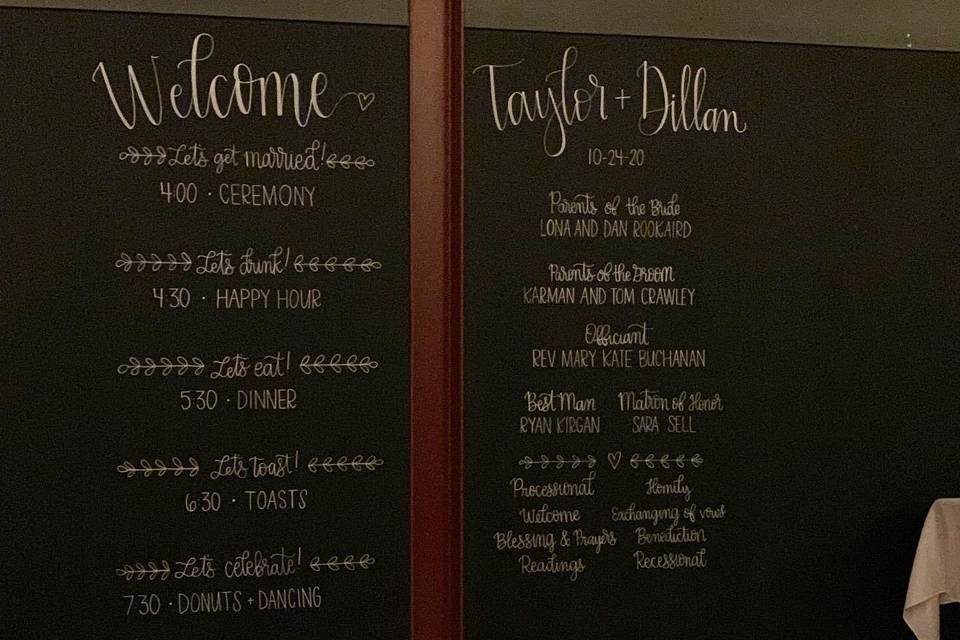 Welcome
Lets get married!
4:00 · CEREMONY
Lets drink!
4:30 · HAPPY HOUR
Lets eat!
5:30 · DINNER
Lets toast!
6:30 · TOASTS
Lets celebrate!
7:30 · DONUTS + DANCING
Taylor + Dillan
10-24-20
Parents of the Bride
LONA AND DAN ROOKAIRD
Parents of the Groom
KARMAN AND TOM CRAWLEY
Officiant
REV MARY KATE BUCHANAN
Best Man Matron of Honor
RYAN KIRGAN SARA SELL
Processional Homily
Welcome Exchanging of vows
Blessing & Prayers Benediction
Readings Recessional